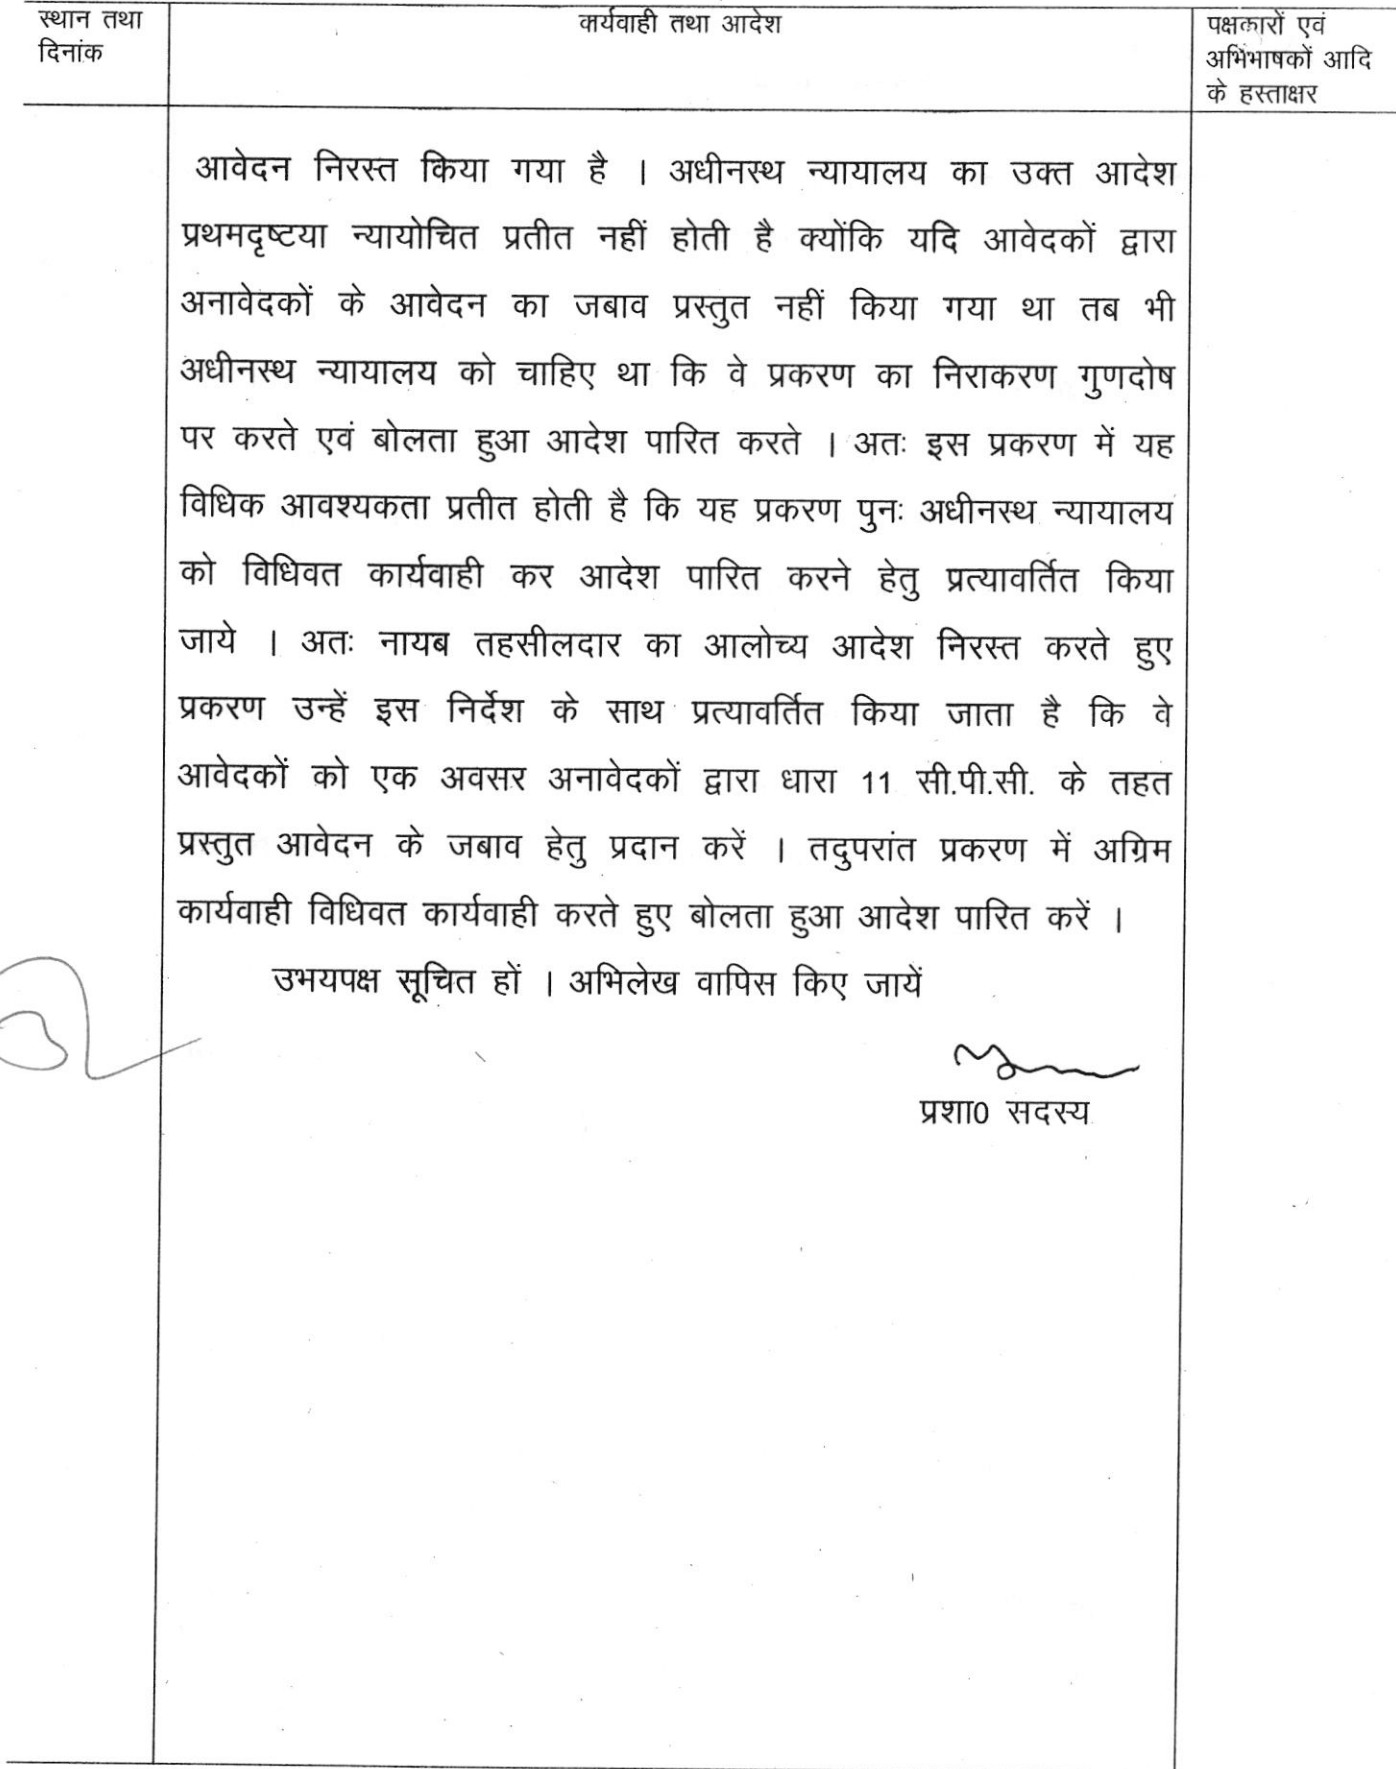 स्थान तथा
दिनांक
कार्यवाही तथा आदेश
पक्षकारों एवं
अभिभाषकों आदि
के हस्ताक्षर
आवेदन निरस्त किया गया है । अधीनस्थ न्यायालय का उक्त आदेश
प्रथमदृष्टया न्यायोचित प्रतीत नहीं होती है क्योंकि यदि आवेदकों द्वारा
अनावेदकों के आवेदन का जबाव प्रस्तुत नहीं किया गया था तब भी
अधीनस्थ न्यायालय को चाहिए था कि वे प्रकरण का निराकरण गुणदोष
पर करते एवं बोलता हुआ आदेश पारित करते । अतः इस प्रकरण में यह
विधिक आवश्यकता प्रतीत होती है कि यह प्रकरण पुनः अधीनस्थ न्यायालय
को विधिवत कार्यवाही कर आदेश पारित करने हेतु प्रत्यावर्तित किया
जाये । अतः नायब तहसीलदार का आलोच्य आदेश निरस्त करते हुए
प्रकरण उन्हें इस निर्देश के साथ प्रत्यावर्तित किया जाता है कि वे
आवेदकों को एक अवसर अनावेदकों द्वारा धारा 11 सी.पी.सी. के तहत
प्रस्तुत आवेदन के जबाव हेतु प्रदान करें । तदुपरांत प्रकरण में अग्रिम
कार्यवाही विधिवत कार्यवाही करते हुए बोलता हुआ आदेश पारित करें ।
उभयपक्ष सूचित हों । अभिलेख वापिस किए जायें
प्रशा0 सदस्य